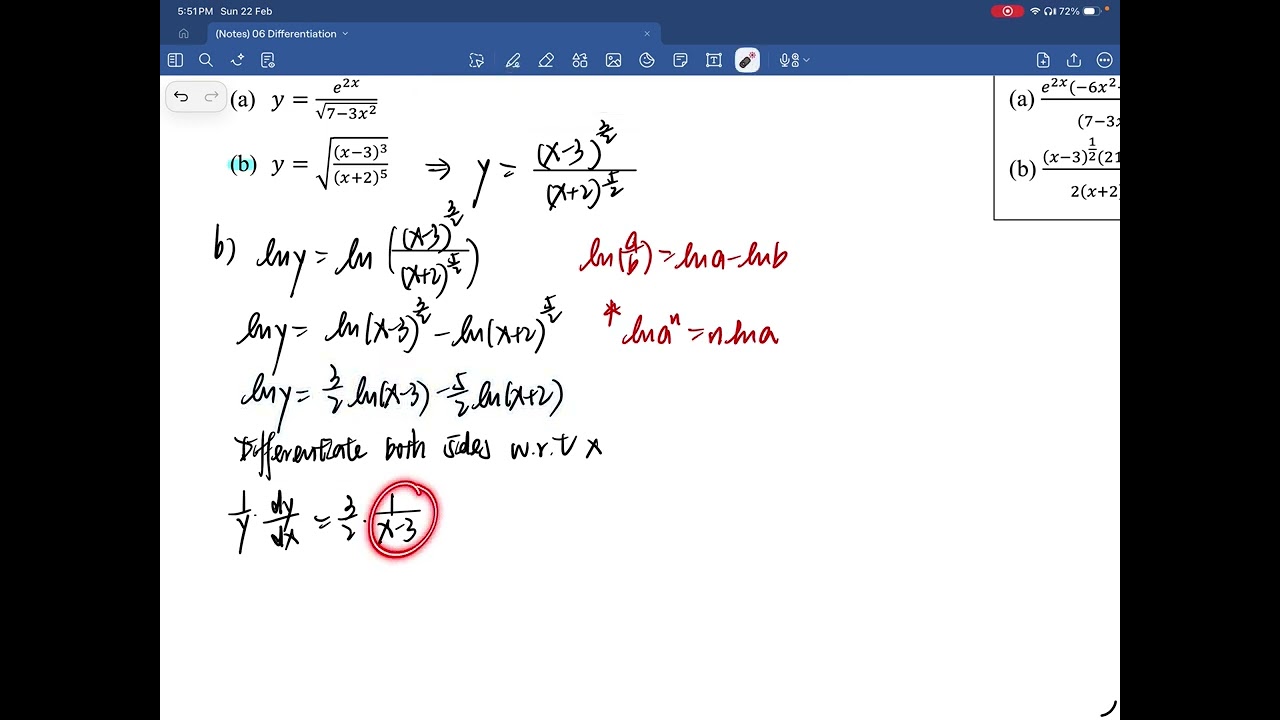 5:51 PM Sun 22 Feb 72%
(Notes) 06 Differentiation
(a) y = e^{2x}/√(7−3x²)
(b) y = √((x−3)³/(x+2)⁵) ⇒ y = (x−3)^{3/2}/(x+2)^{5/2}
(a) e^{2x}(−6x²
(7−3x
(b) (x−3)^{1/2}(21
2(x+2)
b) ln y = ln ((x−3)^{3/2}/(x+2)^{5/2}) ln(a/b) = ln a − ln b
ln y = ln(x−3)^{3/2} − ln(x+2)^{5/2} * ln aⁿ = n ln a
ln y = 3/2 ln(x−3) − 5/2 ln(x+2)
Differentiate both sides w.r.t x
1/y · dy/dx = 3/2 · 1/(x−3)